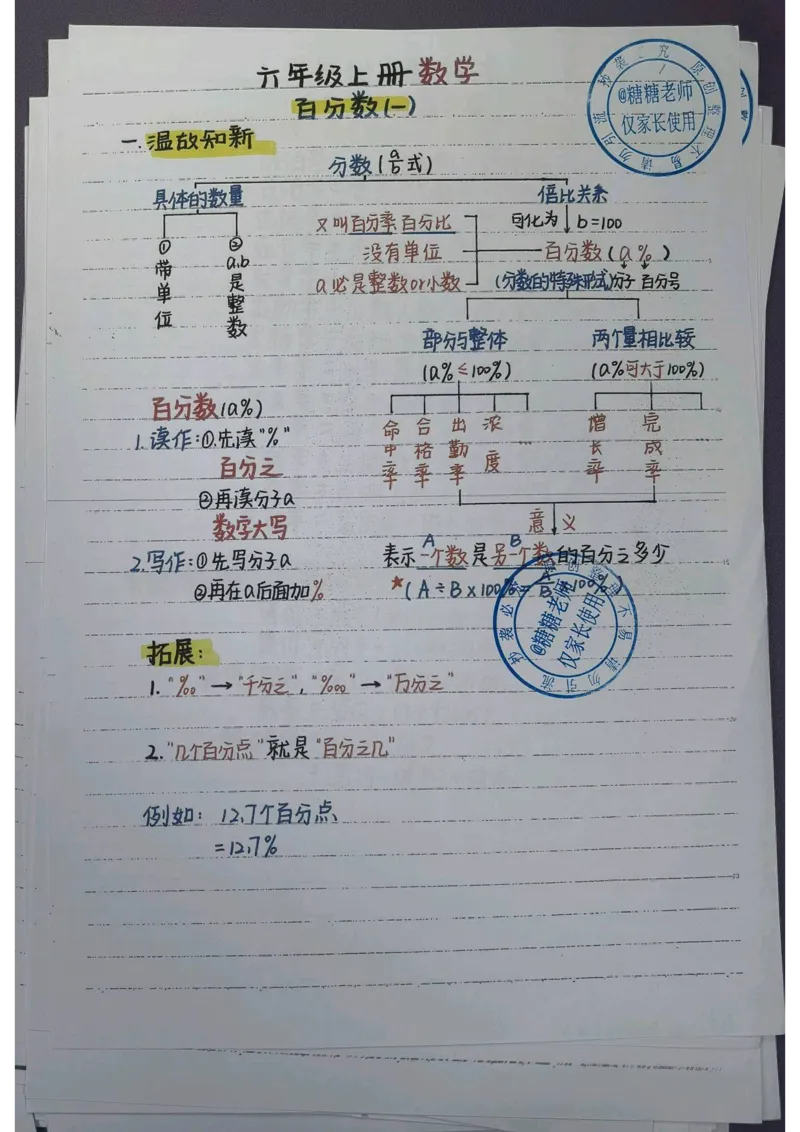 六年级上册数学
百分数(一)
一.温故知新
分数(a/b式)
具体的数量
倍比关系
①带单位
②a.b是整数
可化为 b=100
又叫百分率百分比
没有单位
a必是整数or小数
百分数(a%)
(分数的特殊形式)分子 百分号
部分与整体
(a%≤100%)
两个量相比较
(a%可大于100%)
命中率
合格率
出勤率
浓度
增长率
完成率
意义
A B
表示一个数是另一个数的百分之多少
*(A÷B×100%=
百分数(a%)
1.读作:①.先读"%"
百分之
②再读分子a
数字大写
2.写作:①先写分子a
②再在a后面加%
拓展:
1."‰"→"千分之","‱"→"万分之"
2."几个百分点"就是"百分之几"
例如: 12.7个百分点
=12.7%
@糖糖老师
仅家长使用
@糖糖老师
仅家长使用